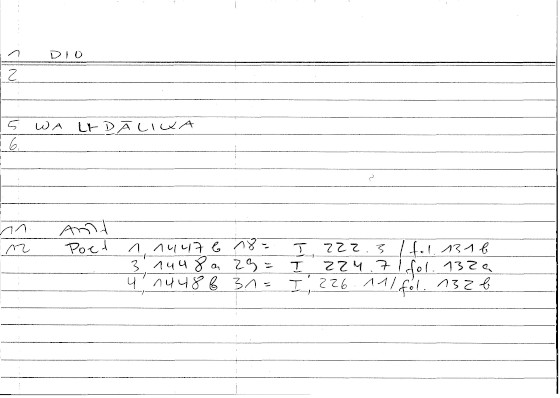 1 DIO
2
5 WA LI-DĀLIKA
6.
11 Arist
12 Poet 1, 1447 b 18 = I, 222.3 / fol. 131 b
3, 1448 a 29 = I, 224.7 / fol. 132 a
4, 1448 b 31 = I, 226.11 / fol. 132 b